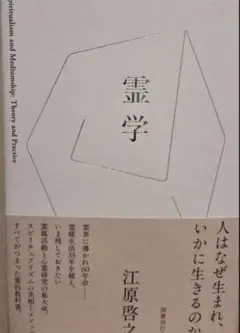 Spiritualism and Mediumship: Theory and Practice
霊学
人はなぜ生まれ、
いかに生きるのか
霊界に導かれ60年余──
霊媒生活35年を越え、
いま残しておきたい
霊媒活動と心霊研究の集大成。
スピリチュアリズムの真相とメソッド
すべてがつまった霊的教科書。
江原啓之
国書刊行